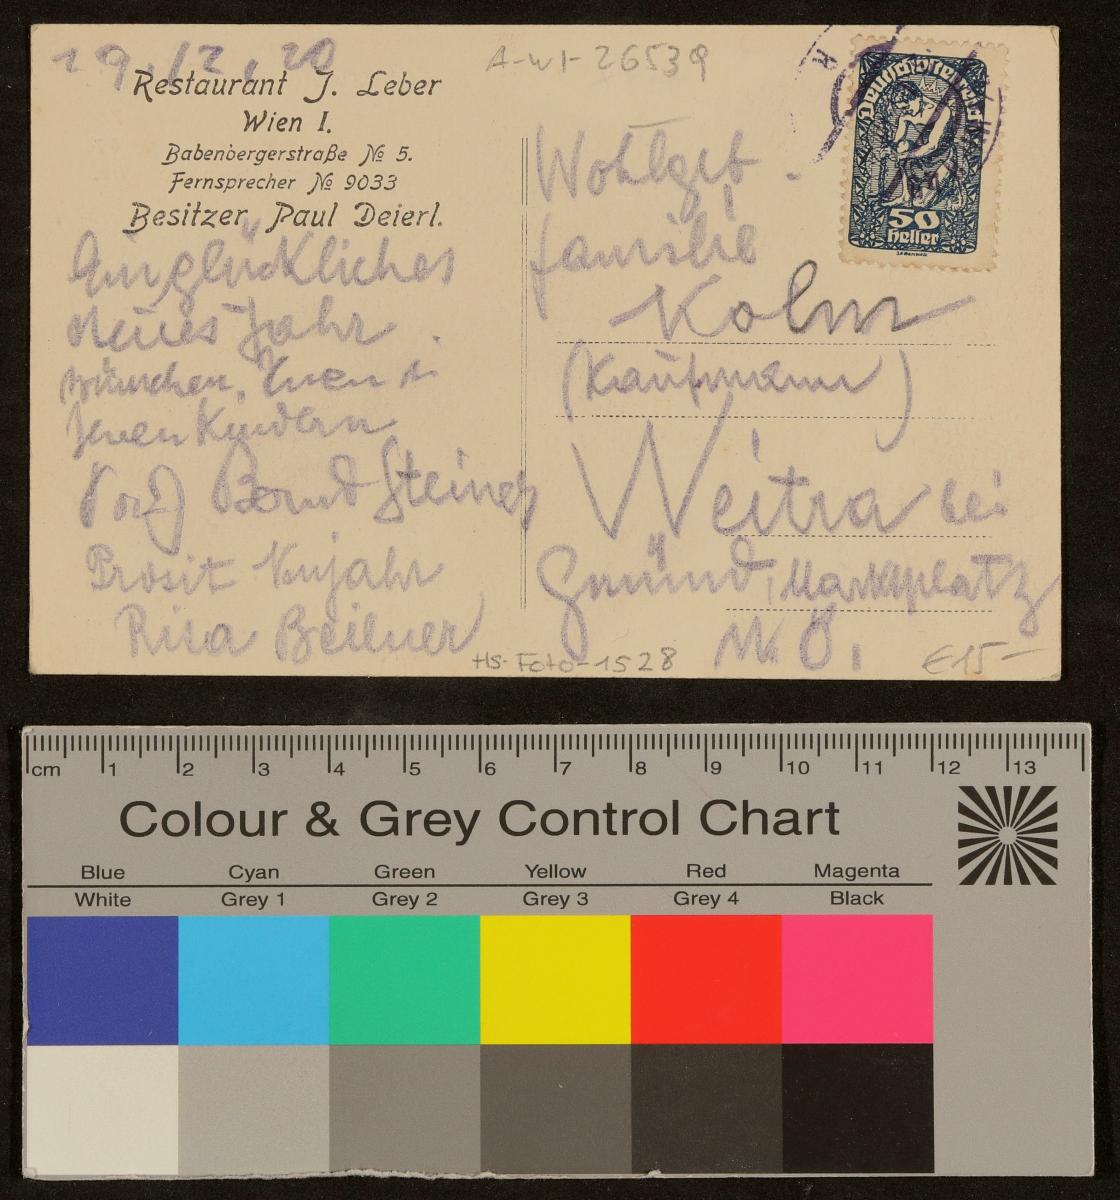 29./2.20
Restaurant J. Leber
Wien I.
Babenbergerstraße № 5.
Fernsprecher № 9033
Besitzer Paul Deierl.
Ein glückliches
neues Jahr
wünschen, Ihnen
Kindern
Steiner
Prosit Neujahr
A-wt-26539
Wohlgeb.
familie
Kolm
(Kaufmann)
Weitra bei
Gmünd, Marktplatz
N.Ö.
Deutschösterreich
50
heller
Hs-Foto-1528
€15-
cm 1 2 3 4 5 6 7 8 9 10 11 12 13
Colour & Grey Control Chart
Blue Cyan Green Yellow Red Magenta
White Grey 1 Grey 2 Grey 3 Grey 4 Black